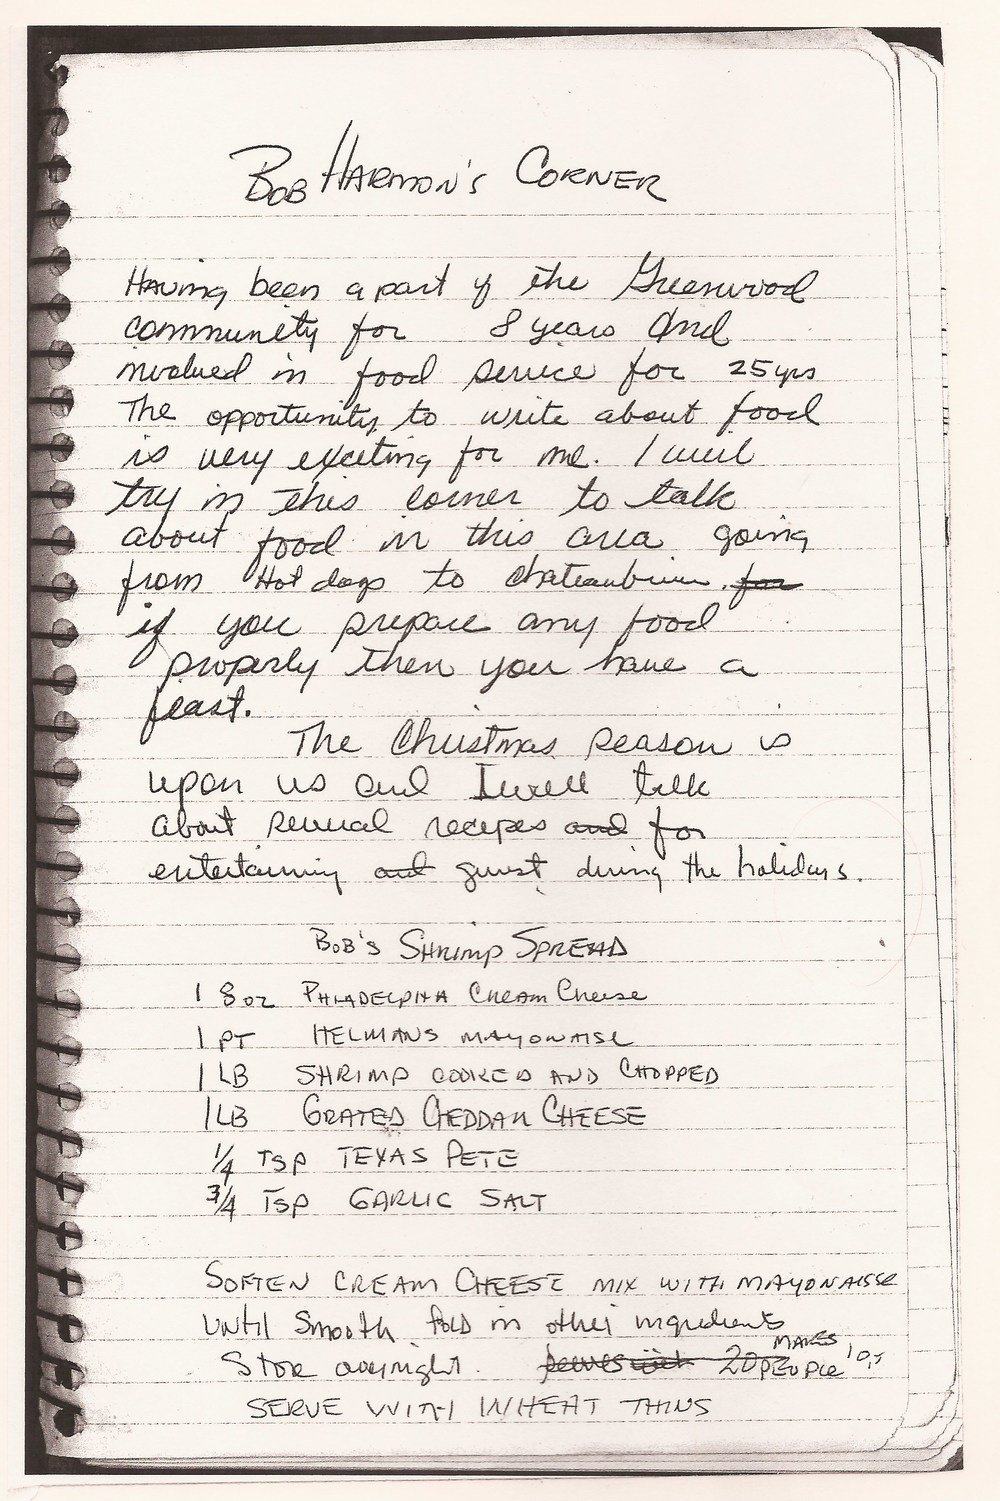 BOB HARMON'S CORNER
Having been a part of the Greenwood
community for 8 years And
involved in food service for 25 yrs
The opportunity to write about food
is very exciting for me. I will
try in this corner to talk
about food in this area going
from Hot dogs to chateaubrium. for
if you prepare any food
properly then you have a
feast.
The Christmas season is
upon us and I will talk
about several recipes and for
entertaining and guest during the holidays.
BOB'S SHRIMP SPREAD
1 8 oz PHILADELPHIA CREAM CHEESE
1 PT HELMANS MAYONAISE
1 LB SHRIMP COOKED AND CHOPPED
1 LB GRATED CHEDDAR CHEESE
1/4 TSP TEXAS PETE
3/4 TSP GARLIC SALT
SOFTEN CREAM CHEESE MIX WITH MAYONAISSE
UNtil Smooth fold in other ingredients
MAKES
STOR overnight. serves with 20 PEOPLE
SERVE WITH WHEAT THINS